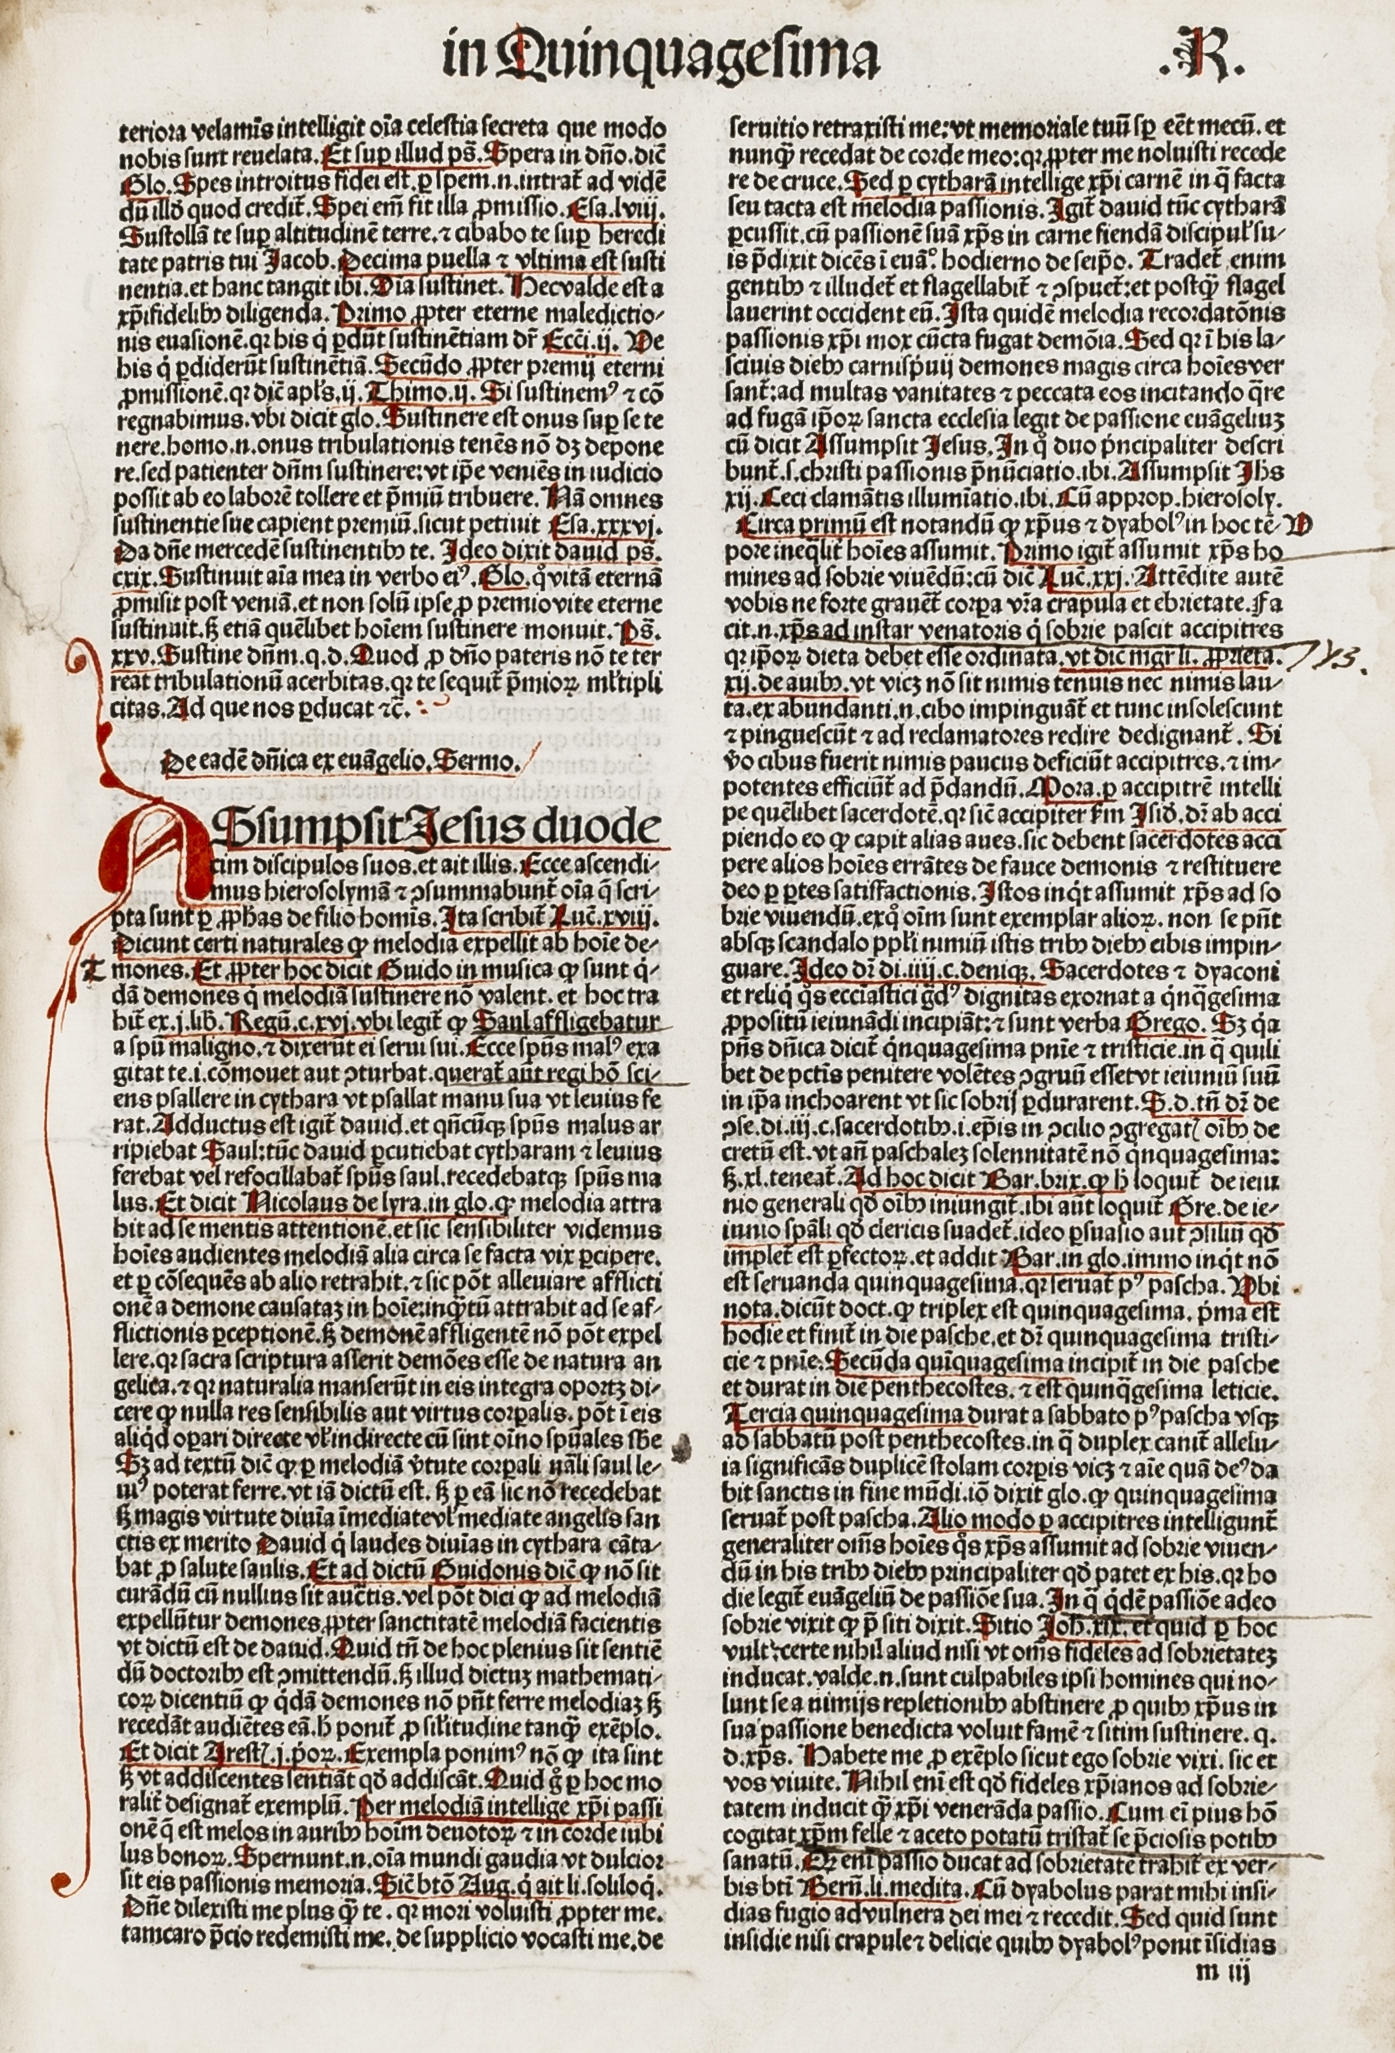 in Quinquagesima .R.
teriora velamīs intelligit oīa celestia secreta que modo
nobis sunt reuelata. Et sup illud ps̄. Spera in dño. dic̄
Glo. Spes introitus fidei est. ꝑ spem .n. intrat̄ ad vidē
dū illđ quod credit̄. Spei em̄ fit illa ꝓmissio. Esa. lviij.
Sustollā te sup altitudinē terre. ⁊ cibabo te sup heredi
tate patris tui Jacob. Decima puella ⁊ vltima est susti
nentia. et hanc tangit ibi. Oīa sustinet. Hec valde est a
xp̄ifidelibꝰ diligenda. Primo ꝓpter eterne maledictio⸗
nis euasionē. qꝛ his q̇ ꝑdūt sustinētiam dr̄ Ecc̄i. ij. Ve
his q̇ ꝑdiderūt sustinētiā. Secūdo ꝓpter premij eterni
ꝓmissionē. qꝛ dic̄ apl̄s. ij. Thimo. ij. Si sustinemꝰ ⁊ cō
regnabimus. vbi dicit glo. Sustinere est onus sup se te
nere. homo .n. onus tribulationis tenēs nō dꝫ depone
re. sed patienter dn̄m sustinere: vt ip̄e veniēs in iudicio
possit ab eo laborē tollere et p̄miū tribuere. Nā omnes
sustinentie sue capient premiū. sicut petiuit Esa. xxxvj.
Da dn̄e mercedē sustinentibꝰ te. Ideo dixit dauid ps̄.
cxix. Sustinuit aīa mea in verbo eiꝰ. Glo. q̊ vitā eternā
ꝓmisit post veniā. et non solū ipse ꝓ premio vite eterne
sustinuit. ꝭ etiā quēlibet hoīem sustinere monuit. Ps̄.
xxv. Sustine dn̄m. q. d. Quod ꝓ dn̄o pateris nō te ter
reat tribulationū acerbitas. qꝛ te sequit̄ p̄mioꝝ ml̄tipli
citas. Ad que nos ꝑducat ⁊c̄.
De eadē dn̄ica ex euāgelio. Sermo.
ASsumpsit Jesus duode
cim discipulos suos. et ait illis. Ecce ascendi⸗
mus hierosolymā ⁊ ꝯsummabunt̄ oīa q̄ scri⸗
pta sunt ꝑ ꝓph̄as de filio homīs. Ita scribit̄ Luc̄. xviij.
Dicunt certi naturales ꝙ melodia expellit ab hoīe de⸗
T mones. Et ꝓpter hoc dicit Guido in musica ꝙ sunt q̇⸗
dā demones q̇ melodiā sustinere nō valent. et hoc tra
hit̄ ex .j. lib̄. Regū. c. xvj. vbi legit̄ ꝙ Saul affligebatur
a sp̄u maligno. ⁊ dixerūt ei serui sui. Ecce sp̄ūs malꝰ exa
gitat te. i. cōmouet aut ꝯturbat. querat̄ aūt regi hō sci⸗
ens psallere in cythara vt psallat manu sua vt leuius fe
rat. Adductus est igit̄ dauid. et qn̄cūqꝫ sp̄ūs malus ar
ripiebat Saul: tūc dauid ꝑcutiebat cytharam ⁊ leuius
ferebat vel refocillabat̄ sp̄ūs saul. recedebatqꝫ sp̄ūs ma
lus. Et dicit Nicolaus de lyra. in glo. ꝙ melodia attra
hit ad se mentis attentionē. et sic sensibiliter videmus
hoīes audientes melodiā alia circa se facta vix ꝑcipere.
et ꝑ cōsequēs ab alio retrahit. ⁊ sic pōt alleuiare afflicti
onē a demone causataꝫ in hoīe: inq̄tū attrahit ad se af⸗
flictionis ꝑceptionē. ꝭ demonē affligentē nō pōt expel
lere. qꝛ sacra scriptura asserit demōes esse de natura an
gelica. ⁊ qꝛ naturalia manserūt in eis integra oportꝫ di⸗
cere ꝙ nulla res sensibilis aut virtus corꝑalis. pōt ī eis
aliq̇d oꝑari directe vl̄ indirecte cū sint oīno sp̄uales sb̄e
Sꝫ ad textū dic̄ ꝙ ꝑ melodiā v̄tute corꝑali nāli saul le⸗
uiꝰ poterat ferre. vt iā dictū est. ꝭ ꝑ eā sic nō recedebat
ꝭ magis virtute diuīa īmediate vl̄ mediate angelis san
ctis ex merito Dauid q̇ laudes diuīas in cythara cāta⸗
bat ꝓ salute saulis. Et ad dictū Guidonis dic̄ ꝙ nō sit
curādū cū nullius sit auct̄is. vel pōt dici ꝙ ad melodiā
expellūtur demones ꝓpter sanctitatē melodiā facientis
vt dictū est de dauid. Quid tn̄ de hoc plenius sit sentiē
dū doctoribꝰ est ꝯmittendū. ꝭ illud dictuꝫ mathemati⸗
coꝝ dicentiū ꝙ q̇dā demones nō pn̄t ferre melodiaꝫ ꝭ
recedāt audiētes eā. h̄ ponit̄ ꝓ sil̄itudine tanq̄ exēplo.
Et dicit Arest̄. j. p̄oꝝ. Exempla ponimꝰ nō ꝙ ita sint
ꝭ vt addiscentes sentiāt qđ addiscāt. Quid g̊ ꝑ hoc mo
ralit̄ designat̄ exemplū. Per melodiā intellige xp̄i passi
onē q̄ est melos in auribꝰ hoīm deuotoꝝ ⁊ in corde iubi
lus bonoꝝ. Spernunt .n. oīa mundi gaudia vt dulcior
sit eis passionis memoria. Sic̄ btō Aug. q̇ ait li. soliloq̇.
Dn̄e dilexisti me plus q̄ te. qꝛ mori voluisti ꝓpter me.
tam caro p̄cio redemisti me. de supplicio vocasti me. de
seruitio retraxisti me: vt memoriale tuū sꝑ eēt mecū. et
nunq̄ recedat de corde meo: qꝛ ꝓpter me noluisti recede
re de cruce. Sed ꝑ cytharā intellige xp̄i carnē in q̄ facta
seu tacta est melodia passionis. Igit̄ dauid tūc cytharā
ꝑcussit. cū passionē suā xp̄s in carne fiendā discipul̄ su⸗
is p̄dixit dicēs ī euā°. hodierno de seip̄o. Tradet̄ enim
gentibꝰ ⁊ illudet̄ et flagellabit̄ ⁊ ꝯspuet̄: et postq̄ flagel
lauerint occident eū. Ista quidē melodia recordatōnis
passionis xp̄i mox cūcta fugat demōia. Sed qꝛ ī his la⸗
sciuis diebꝰ carnisp̄uij demones magis circa hoīes ver
sant̄: ad multas vanitates ⁊ peccata eos incitando q̄re
ad fugā ip̄oꝝ sancta ecclesia legit de passione euāgeliuꝫ
cū dicit Assumpsit Jesus. In q̊ duo p̄ncipaliter descri
bunt̄. s. christi passionis p̄nūciatio. ibi. Assumpsit Jhs
xij. Ceci clamātis illumīatio. ibi. Cū approp. hierosoly.
Circa primū est notandū ꝙ xp̄us ⁊ dyabolꝰ in hoc tē⸗ V
pore ineq̄lit̄ hoīes assumit. Primo igit̄ assumit xp̄s ho
mines ad sobrie viuēdū: cū dic̄ Luc̄. xxj. Attēdite autē
vobis ne forte grauēt̄ corꝑa vr̄a crapula et ebrietate. Fa
cit .n. xp̄s ad instar venatoris q̇ sobrie pascit accipitres
qꝛ ip̄oꝝ dieta debet esse ordinata. vt dic̄ mgr̄ li. ꝓprieta.
xij. de auibꝰ. vt vicꝫ nō sit nimis tenuis nec nimis lau⸗
ta. ex abundanti .n. cibo impinguāt̄ et tunc insolescunt
⁊ pinguescūt ⁊ ad reclamatores redire dedignant̄. Si
v̊o cibus fuerit nimis paucus deficiūt accipitres. ⁊ im⸗
potentes efficiūt̄ ad p̄dandū. Mora. ꝑ accipitrē intelli
ge quēlibet sacerdotē. qꝛ sic̄ accipiter ẜm Isid̄. dr̄ ab acci
piendo eo ꝙ capit alias aues. sic debent sacerdotes acci
pere alios hoīes errātes de fauce demonis ⁊ restituere
deo ꝑ ꝑtes satisfactionis. Istos inq̇t assumit xp̄s ad so
brie viuendū. ex q̊ oīm sunt exemplar alioꝝ. non se pn̄t
absqꝫ scandalo ppl̄i nimiū istis tribꝰ diebꝰ cibis impin⸗
guare. Ideo dr̄ di. iiij. c. deniqꝫ. Sacerdotes ⁊ dyaconi
et reliq̇ q̊s eccl̄iastici gđꝰ dignitas exornat a q̇nq̄gesima
ꝓpositū ieiunādi incipiāt: ⁊ sunt verba Grego. Sꝫ q̇a
pn̄s dn̄ica dicit̄ q̇nquagesima pn̄ie ⁊ tristicie. in q̄ quili
bet de pctīs penitere volētes ꝯgruū esset vt ieiuniū suū
in ip̄a inchoarent vt sic sobrij ꝑdurarent. S. d. tn̄ dr̄ de
ꝯse. di. iij. c. sacerdotibꝰ. i. ep̄is in ꝯcilio ꝯgregat̄ oībꝰ de
cretū est. vt an̄ paschaleꝫ solennitatē nō q̇nquagesima:
ꝭ. xl. teneat̄. Ad hoc dicit Bar. brix. ꝙ h̄ loquit̄ de ieiu
nio generali qđ oībꝰ iniungit̄. ibi aūt loquit̄ Gre. de ie⸗
iunio sp̄āli qđ clericis suadet̄. ideo ꝑsuasio aut ꝯsiliū qđ
implet̄ est ꝑfectoꝝ. et addit Bar. in glo. immo inq̇t nō
est seruanda quinquagesima. qꝛ seruat̄ pꝰ pascha. Vbi
nota. dicūt doct. ꝙ triplex est quinquagesima. p̄ma est
hodie et finit̄ in die pasche. et dr̄ quinquagesima tristi⸗
cie ⁊ pn̄ie. Secūda quīquagesima incipit̄ in die pasche
et durat in die penthecostes. ⁊ est quinq̄gesima leticie.
Tercia quinquagesima durat a sabbato pꝰ pascha vsqꝫ
ad sabbatū post penthecostes. in q̄ duplex canit̄ allelu⸗
ia significās duplicē stolam corꝑis vicꝫ ⁊ aīe quā deꝰ da
bit sanctis in fine mūdi. iō dixit glo. ꝙ quinquagesima
seruat̄ post pascha. Alio modo ꝑ accipitres intelligunt̄
generaliter om̄s hoīes q̊s xp̄s assumit ad sobrie viuen⸗
dū in his tribꝰ diebꝰ principaliter qđ patet ex his. qꝛ ho
die legit̄ euāgeliū de passiōe sua. In q̄ q̇dē passiōe adeo
sobrie vixit ꝙ p̄ siti dixit. Sitio Joh̄. xix. et quid ꝑ hoc
vult: certe nihil aliud nisi vt om̄s fideles ad sobrietateꝫ
inducat. valde .n. sunt culpabiles ipsi homines qui no⸗
lunt se a nimijs repletionibꝰ abstinere ꝓ quibꝰ xp̄us in
sua passione benedicta voluit famē ⁊ sitim sustinere. q.
d. xp̄s. Habete me ꝓ exēplo sicut ego sobrie vixi. sic et
vos viuite. Nihil enī est qđ fideles xp̄ianos ad sobrie⸗
tatem inducit q̄ xp̄i venerāda passio. Cum eī pius hō
cogitat xp̄m felle ⁊ aceto potatū tristat̄ se p̄ciosis potibꝰ
sanatū. Qꝛ enī passio ducat ad sobrietatē trahit̄ ex ver⸗
bis bti̅ Bern̄. li. medita. Cū dyabolus parat mihi insi⸗
dias fugio ad vulnera dei mei ⁊ recedit. Sed quid sunt
insidie nisi crapule ⁊ delicie quibꝰ dyabolꝰ ponit īsidias
m iij